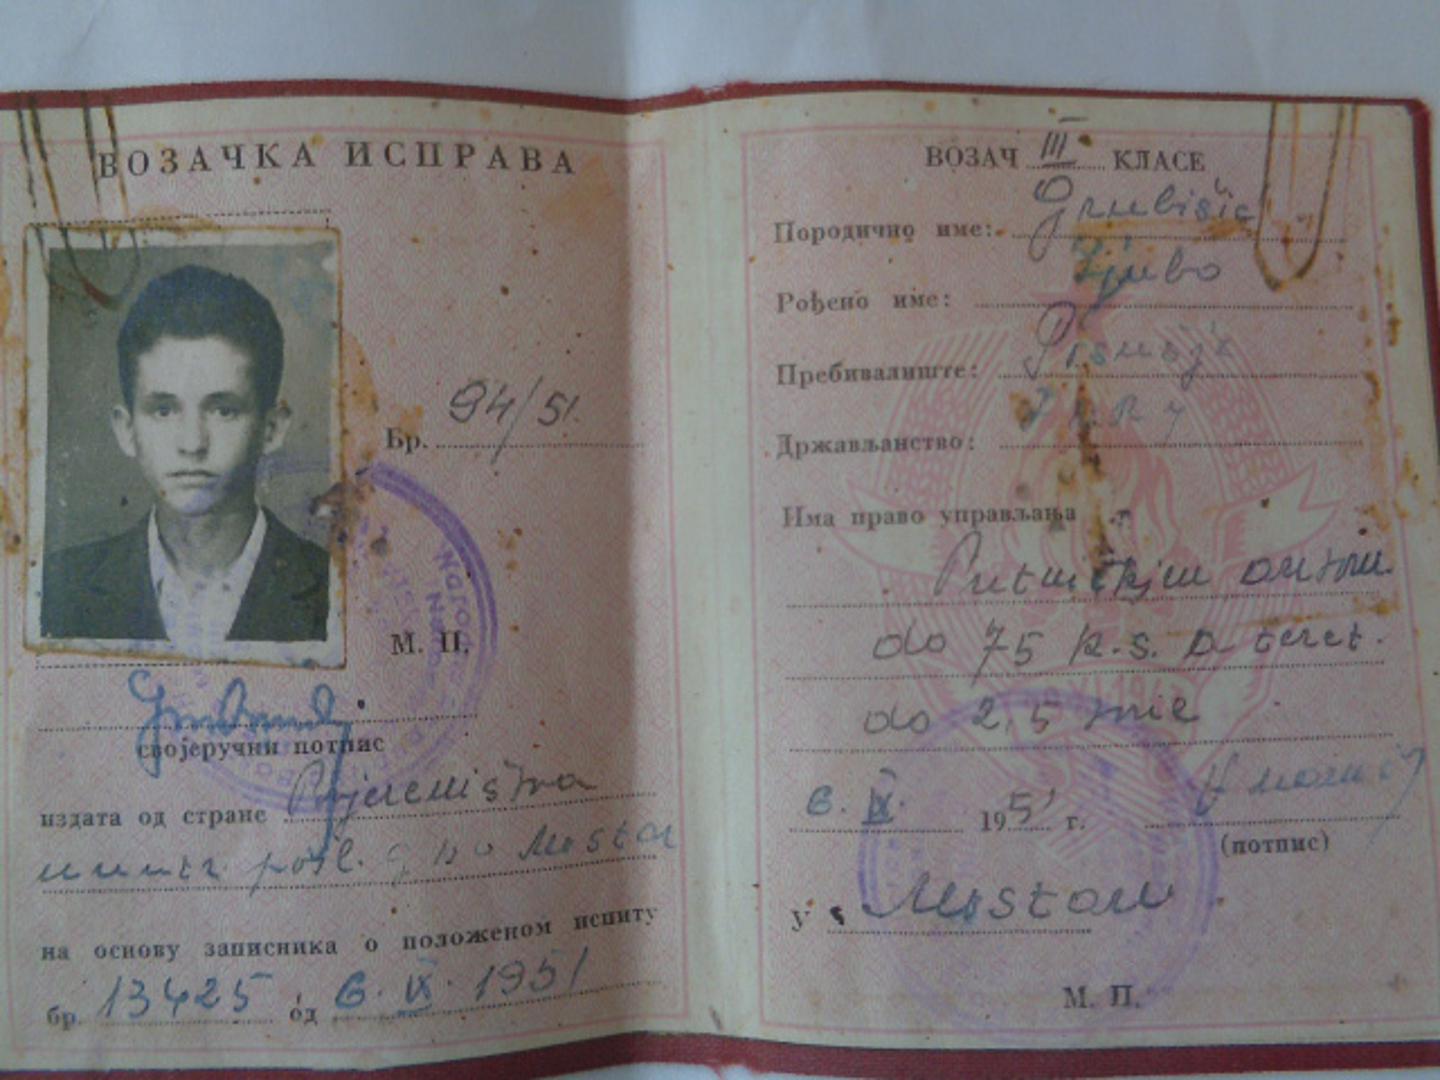 ВОЗАЧКА ИСПРАВА
Бр. 94/51.
М. П.
својеручни потпис
издата од стране Povjereništva
unutr. posl. g no Mostar
на основу записника о положеном испиту
бр. 13425 од 6. IX. 1951
ВОЗАЧ III КЛАСЕ
Породично име: Grubišić
Рођено име: Ljubo
Пребивалиште:
Држављанство: FNRJ
Има право управљања
Putničkim autom
do 75 k.s. a teret.
do 2,5 tone
6. IX. 1951 г.
(потпис)
У Mostaru
М. П.